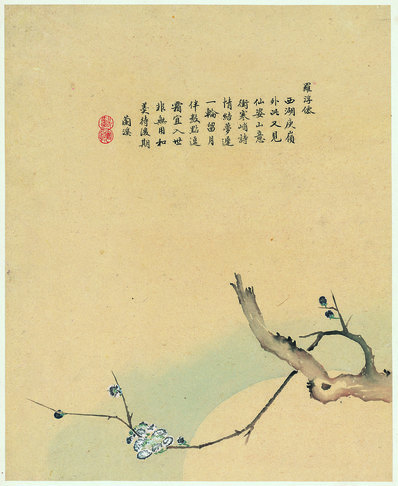 羅浮僊
西湖庾嶺
外此又見
仙姿山意
衝寒峭詩
情結夢遲
一輪留月
伴數點
霜宜入世
非無用和
羹待後期
蘭溪